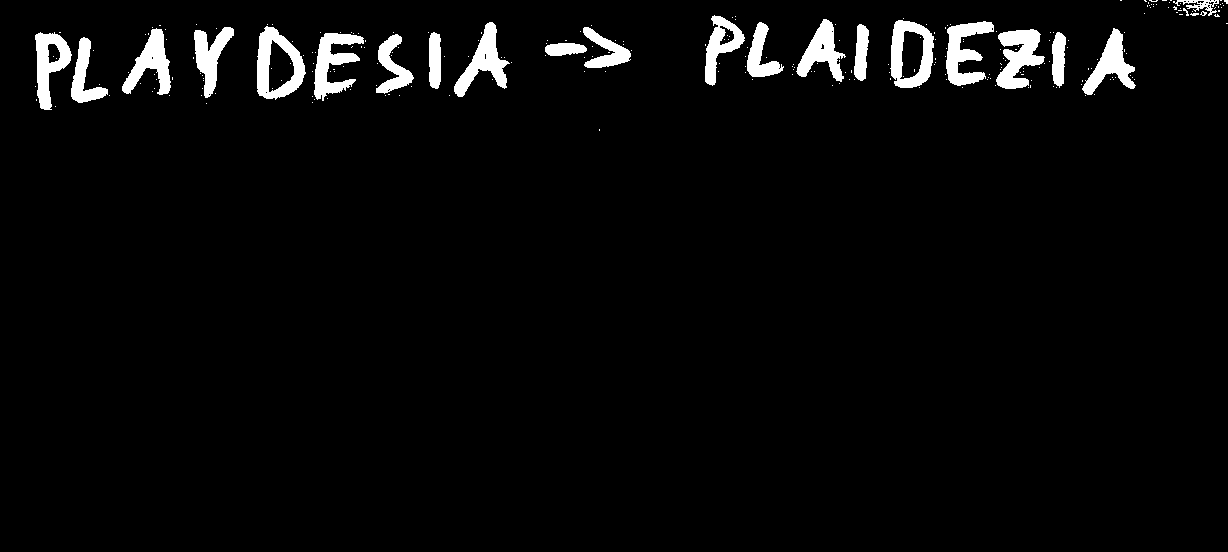 PLAYDESIA -> PLAIDEZIA